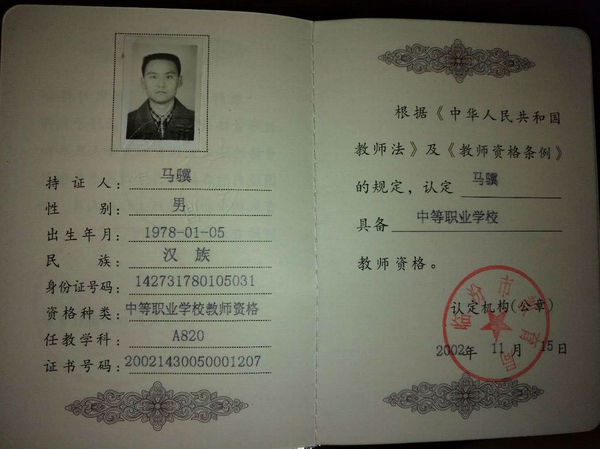 持证人：马骥
性别：男
出生年月：1978-01-05
民族：汉族
身份证号码：142731780105031
资格种类：中等职业学校教师资格
任教学科：A820
证书号码：20021430050001207
根据《中华人民共和国
教师法》及《教师资格条例》
的规定，认定 马骥
具备 中等职业学校
教师资格。
认定机构(公章)
临汾市教育局
2002年 11月 15日